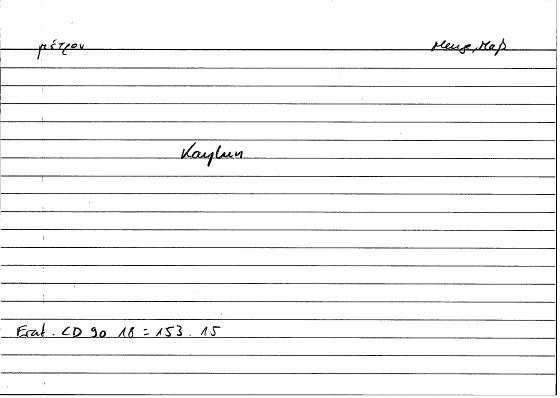 μέτρον Menge, Maß
Kaylun
Erat. CD 90 18 = 153.15